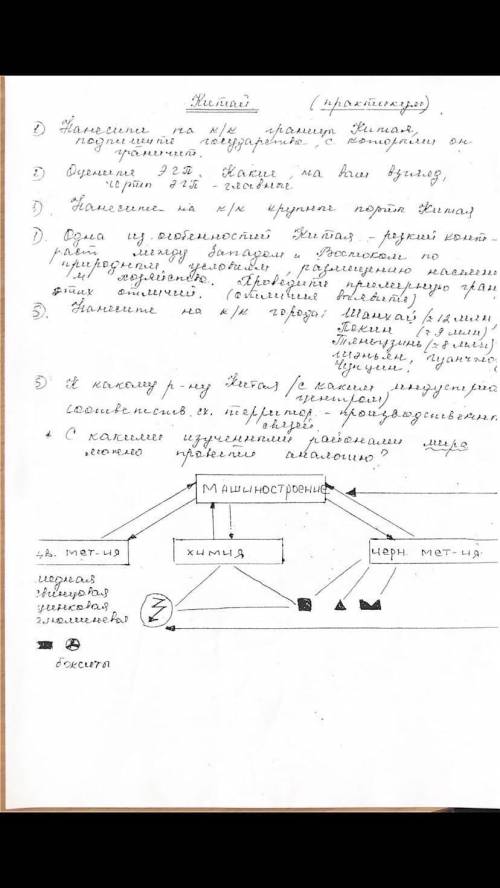 Китай (практикум)
1) Нанесите на к/к границы Китая,
подпишите государства, с которыми он
граничит.
2) Оцените ЭГП. Какие, на ваш взгляд,
черты ЭГП - главные
3) Нанесите на к/к крупные порты Китая
Одна из особенностей Китая - резкий конт-
раст между Западом и Востоком по
природным условиям, размещению населени
и хозяйство. Проведите примерную гран
этих отличий. (отличия выявите)
5) Нанесите на к/к города: Шанхай (≈12 млн
Пекин (≈9 млн)
Тяньцзинь (≈8 млн)
Шэньян, Гуанчжо
Чунцин.
5) К какому р-ну Китая (с каким индустриа
центром)
соответств. сх. территор. - производственн
связей
+ С какими изученными районами мира
можно провести аналогию?
Машиностроение
цв. мет-ия химия черн. мет-ия
медная
винцовая
цинковая
люминевая
бокситы